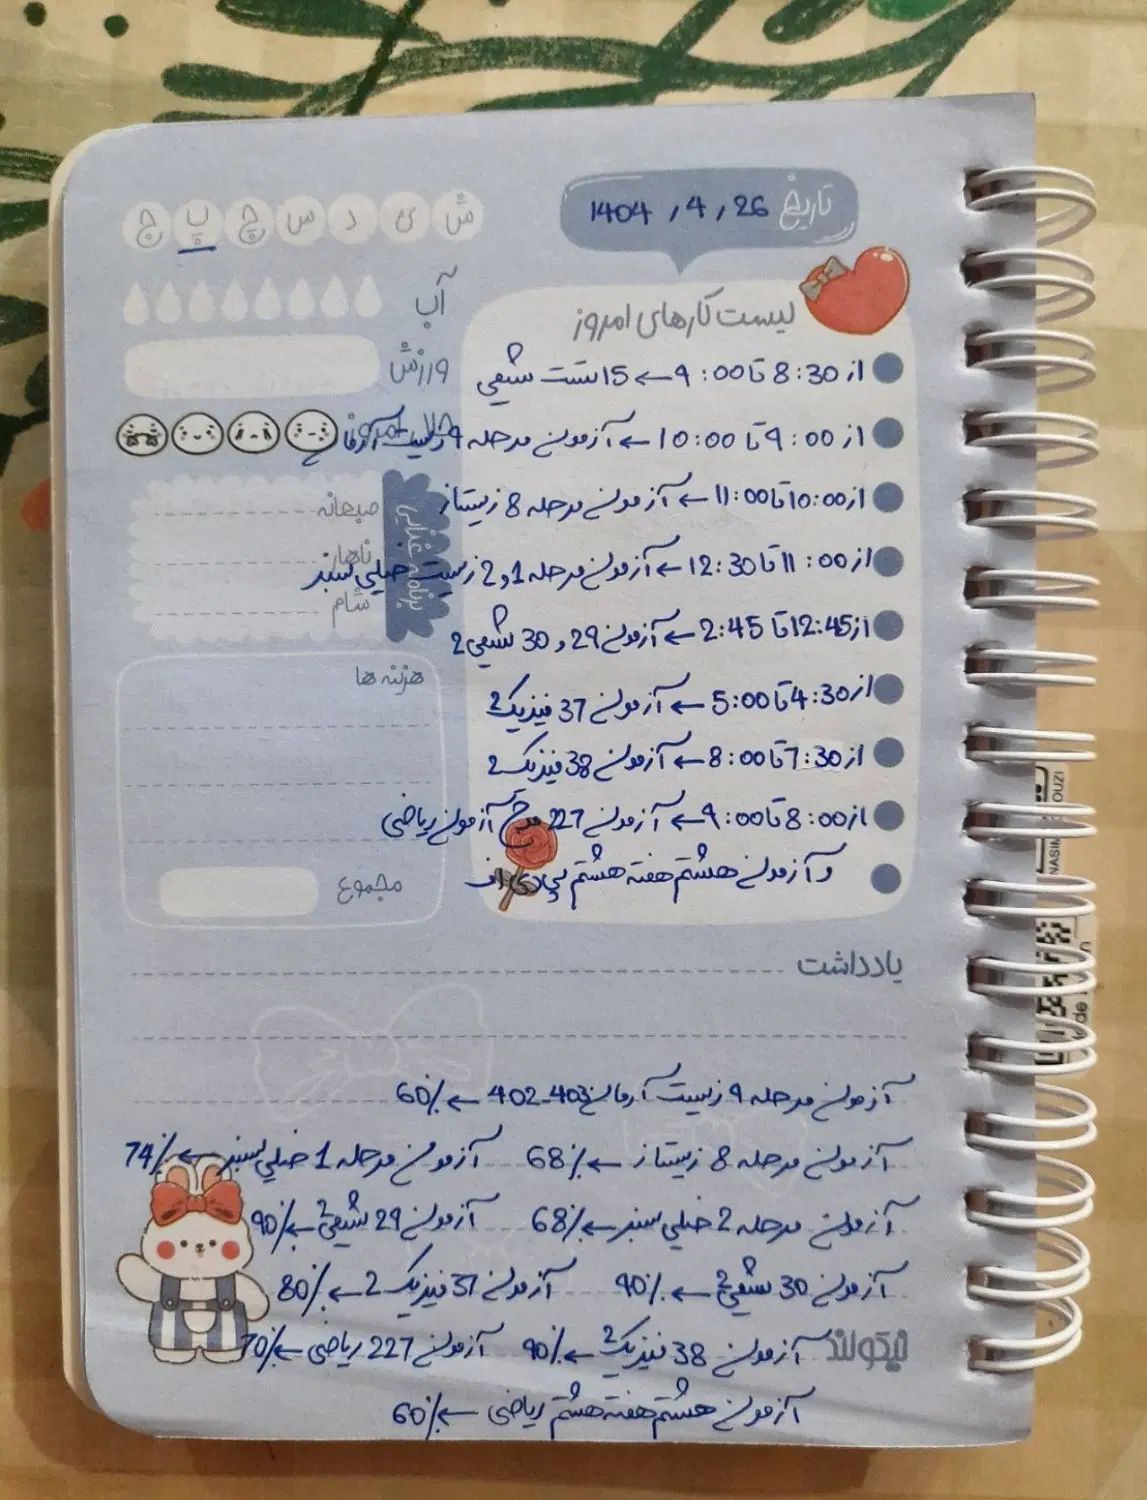 تاریخ 1404 , 4 , 26
ش ی د س چ پ ج
لیست کارهای امروز
آب
ورزش
از 8:30 تا 9:00 ← 15 تست شیمی
از 9:00 تا 10:00 ← آزمون مرحله 9 زیست آرمان
از 10:00 تا 11:00 ← آزمون مرحله 8 زیستاز
صبحانه
ناهار
شام
برنامه غذایی
از 11:00 تا 12:30 ← آزمون مرحله 1 و 2 زیست خیلی سبز
از 12:45 تا 2:45 ← آزمون 29 و 30 شیمی 2
هزینه ها
از 4:30 تا 5:00 ← آزمون 37 فیزیک 2
از 7:30 تا 8:00 ← آزمون 38 فیزیک 2
از 8:00 تا 9:00 ← آزمون 227 آزمون ریاضی
و آزمون هشتم هفته هشتم پی دی اف
مجموع
یادداشت
آزمون مرحله 9 زیست آرمان 403-402 ← 60%
آزمون مرحله 8 زیستاز ← 68% آزمون مرحله 1 خیلی سبز ← 74%
آزمون مرحله 2 خیلی سبز ← 68% آزمون 29 شیمی 2 ← 90%
آزمون 30 شیمی 2 ← 90% آزمون 37 فیزیک 2 ← 80%
آزمون 38 فیزیک 2 ← 90% آزمون 227 ریاضی ← 70%
نیکولند
آزمون هشتم هفته هشتم ریاضی ← 60%